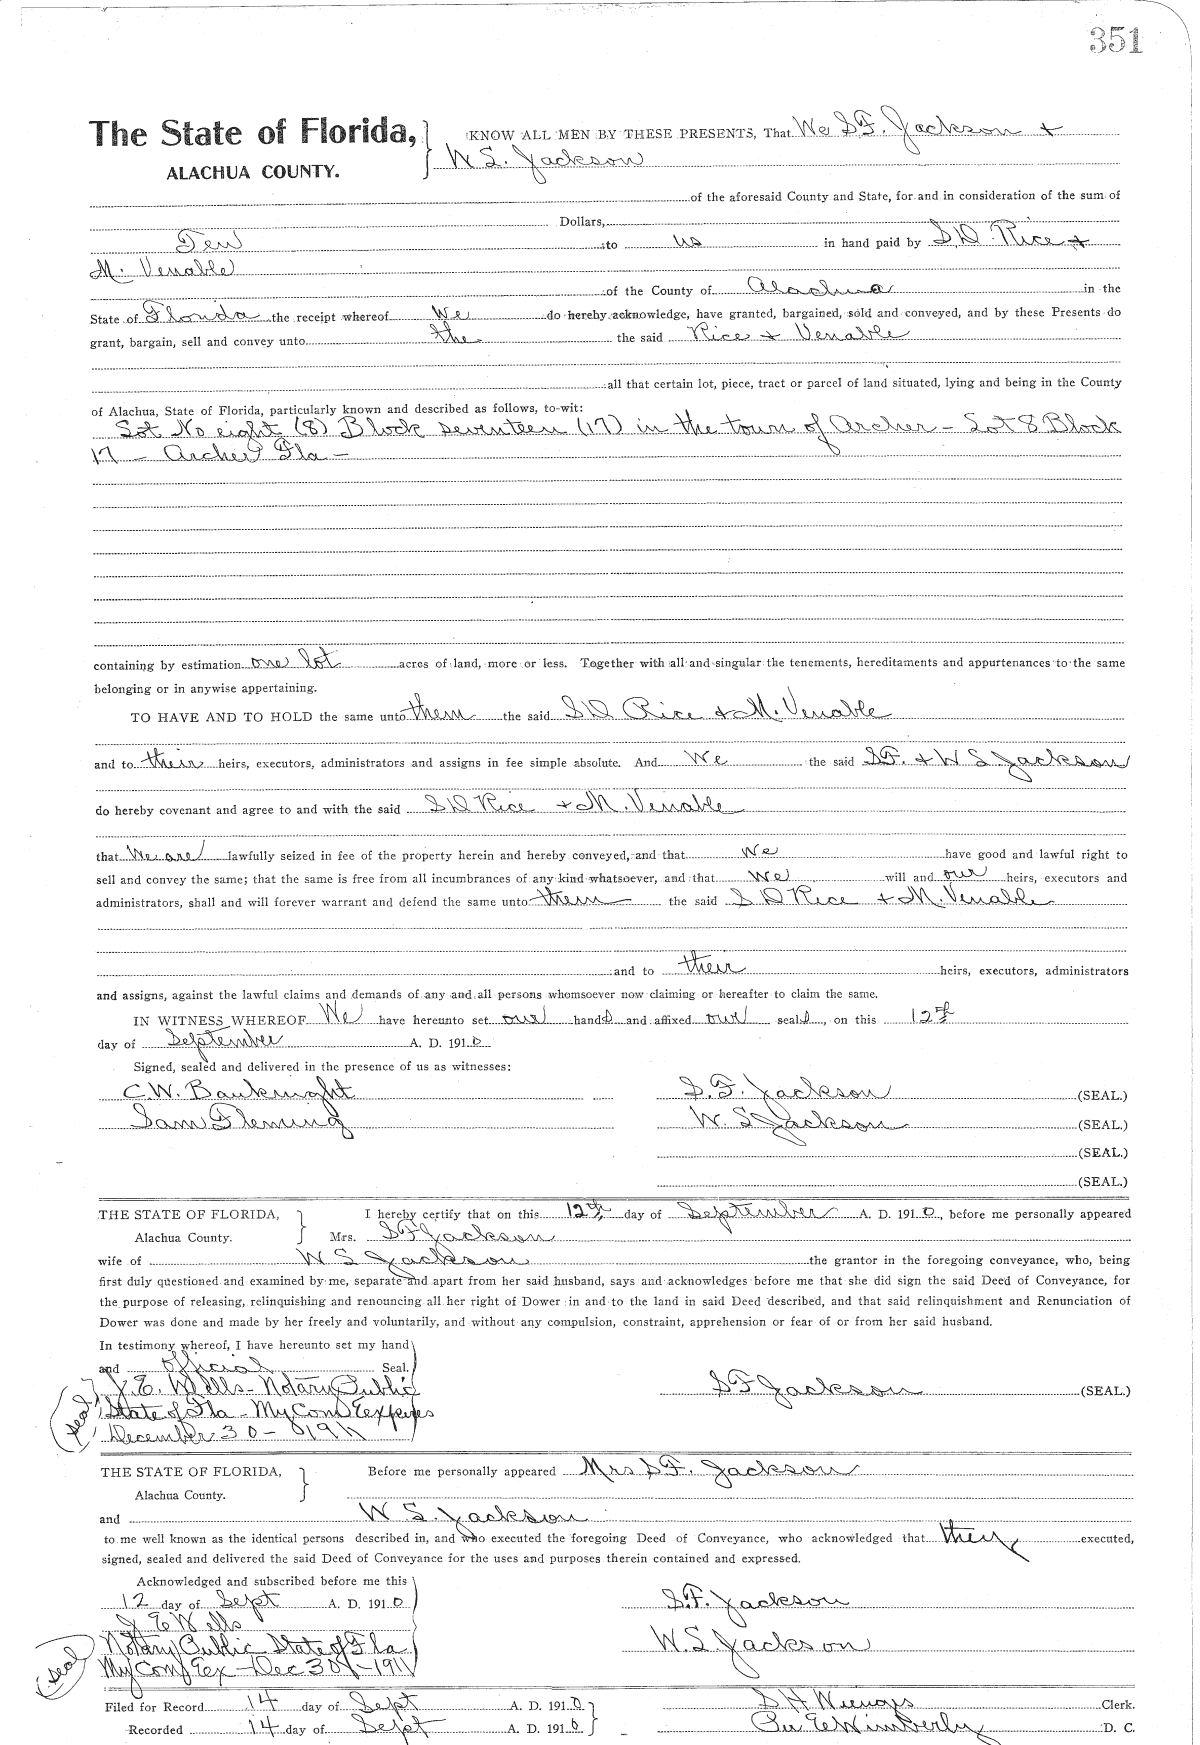 351
The State of Florida, KNOW ALL MEN BY THESE PRESENTS, That We S.F. Jackson +
ALACHUA COUNTY. W S. Jackson
of the aforesaid County and State, for and in consideration of the sum of
Dollars,
Ten to us in hand paid by S.D. Rice +
M. Venable
of the County of Alachua in the
State of Florida the receipt whereof We do hereby acknowledge, have granted, bargained, sold and conveyed, and by these Presents do
grant, bargain, sell and convey unto the the said Rice + Venable
all that certain lot, piece, tract or parcel of land situated, lying and being in the County
of Alachua, State of Florida, particularly known and described as follows, to-wit:
Lot No eight (8) Block seventeen (17) in the town of Archer - Lot 8 Block
17 - Archer Fla -
containing by estimation one lot acres of land, more or less. Together with all and singular the tenements, hereditaments and appurtenances to the same
belonging or in anywise appertaining.
TO HAVE AND TO HOLD the same unto them the said S D Rice + M. Venable
and to their heirs, executors, administrators and assigns in fee simple absolute. And We the said S.F. + W S Jackson
do hereby covenant and agree to and with the said S D Rice + M. Venable
that We are lawfully seized in fee of the property herein and hereby conveyed, and that We have good and lawful right to
sell and convey the same; that the same is free from all incumbrances of any kind whatsoever, and that We will and our heirs, executors and
administrators, shall and will forever warrant and defend the same unto them the said S D Rice + M. Venable
and to their heirs, executors, administrators
and assigns, against the lawful claims and demands of any and all persons whomsoever now claiming or hereafter to claim the same.
IN WITNESS WHEREOF We have hereunto set our hands and affixed our seals, on this 12th
day of September A. D. 1910
Signed, sealed and delivered in the presence of us as witnesses:
C.W. Bauknight S.F. Jackson (SEAL.)
Sam Fleming W. S Jackson (SEAL.)
(SEAL.)
(SEAL.)
THE STATE OF FLORIDA, I hereby certify that on this 12th day of September A. D. 1910, before me personally appeared
Alachua County. Mrs. S F Jackson
wife of W S Jackson the grantor in the foregoing conveyance, who, being
first duly questioned and examined by me, separate and apart from her said husband, says and acknowledges before me that she did sign the said Deed of Conveyance, for
the purpose of releasing, relinquishing and renouncing all her right of Dower in and to the land in said Deed described, and that said relinquishment and Renunciation of
Dower was done and made by her freely and voluntarily, and without any compulsion, constraint, apprehension or fear of or from her said husband.
In testimony whereof, I have hereunto set my hand
and official Seal.
J. E. Wells - Notary Public S F Jackson (SEAL.)
(seal) State of Fla - My Com Expires
December 30 - 1911
THE STATE OF FLORIDA, Before me personally appeared Mrs S F. Jackson
Alachua County.
and W S. Jackson
to me well known as the identical persons described in, and who executed the foregoing Deed of Conveyance, who acknowledged that they executed,
signed, sealed and delivered the said Deed of Conveyance for the uses and purposes therein contained and expressed.
Acknowledged and subscribed before me this
12 day of Sept A. D. 1910 S.F. Jackson
J E Wells
Notary Public State of Fla W.S. Jackson
(seal) My Com Ex - Dec 30 - 1911
Filed for Record 14 day of Sept A. D. 1910 S H Wienges Clerk.
Recorded 14 day of Sept A. D. 1910 Per E Wimberly D. C.